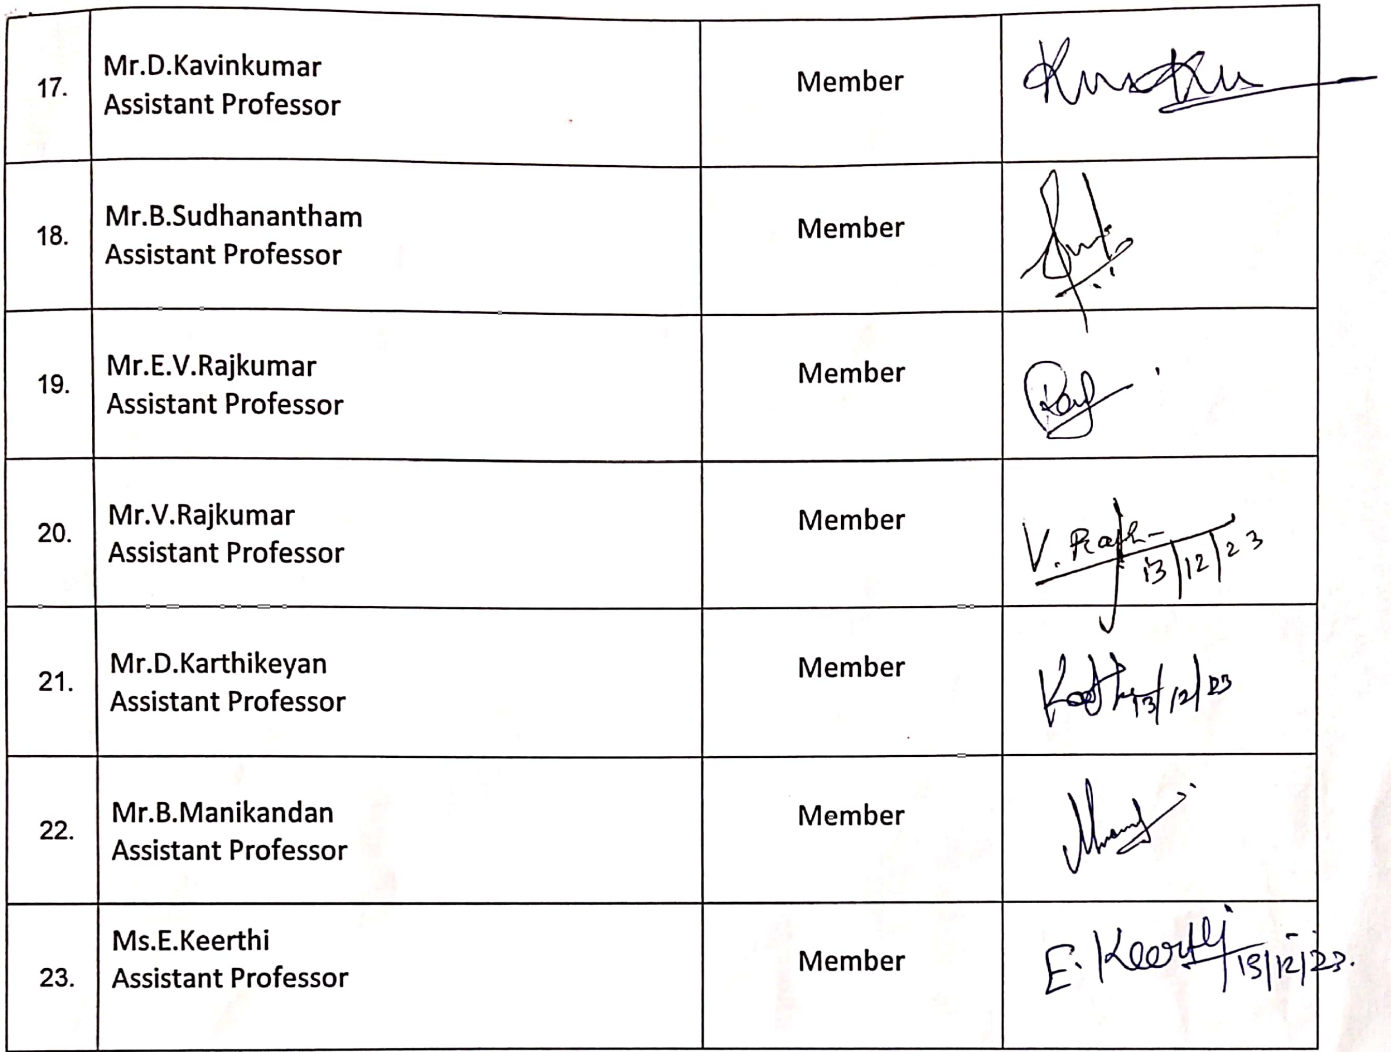 17.
Mr.D.Kavinkumar
Assistant Professor
Member
18.
Mr.B.Sudhanantham
Assistant Professor
Member
19.
Mr.E.V.Rajkumar
Assistant Professor
Member
20.
Mr.V.Rajkumar
Assistant Professor
Member
13/12/23
21.
Mr.D.Karthikeyan
Assistant Professor
Member
13/12/23
22.
Mr.B.Manikandan
Assistant Professor
Member
23.
Ms.E.Keerthi
Assistant Professor
Member
E. Keerthi
13/12/23.